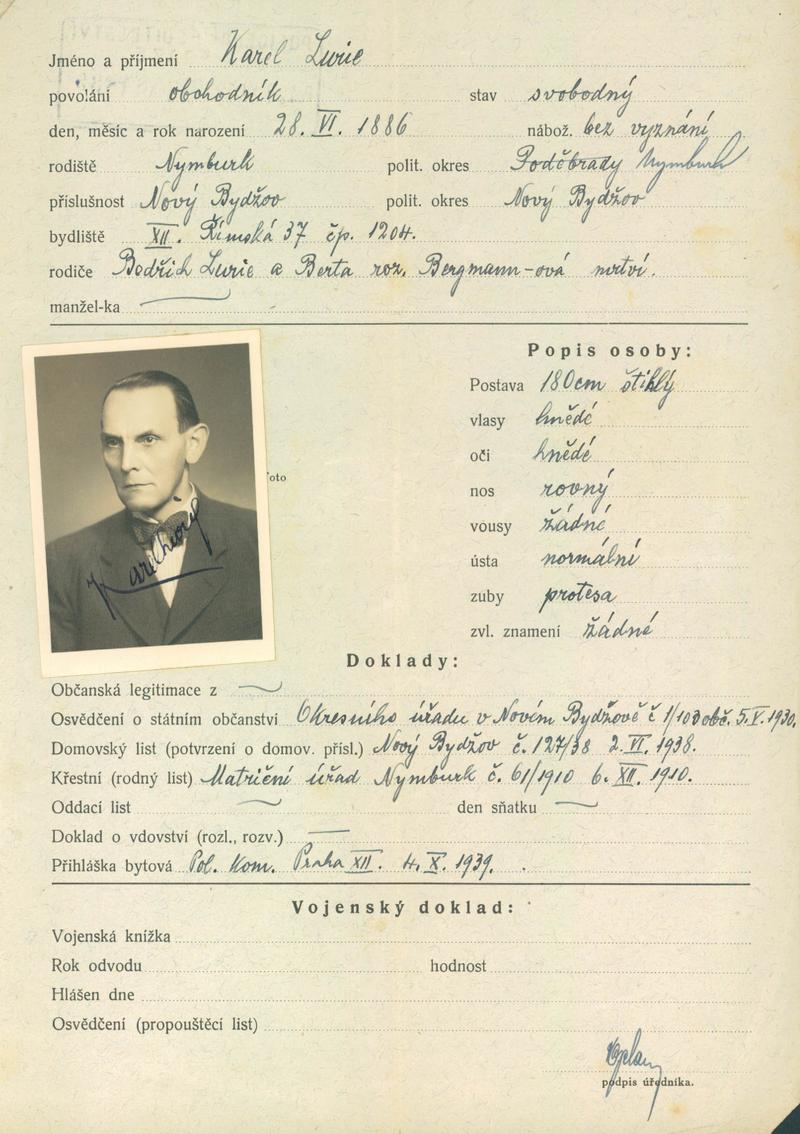 Jméno a příjmení Karel Lurie
povolání obchodník stav svobodný
den, měsíc a rok narození 28. VI. 1886 nábož. bez vyznání
rodiště Nymburk polit. okres Poděbrady Nymburk
příslušnost Nový Bydžov polit. okres Nový Bydžov
bydliště XII. Římská 37 čp. 1204.
rodiče Bedřich Lurie a Berta roz. Bergmann-ová mrtví.
manžel-ka
Popis osoby:
Postava 180cm štíhlý
vlasy hnědé
oči hnědé
oto
nos rovný
vousy žádné
ústa normální
zuby protesa
zvl. znamení žádné
Karel Lurie
Doklady:
Občanská legitimace z
Osvědčení o státním občanství Okresního úřadu v Novém Bydžově č 1/103 obč. 5.V.1930.
Domovský list (potvrzení o domov. přísl.) Nový Bydžov č. 127/38 2.VI.1938.
Křestní (rodný list) Matriční úřad Nymburk č. 61/1910 6.XII.1910.
Oddací list den sňatku
Doklad o vdovství (rozl., rozv.)
Přihláška bytová Pol. kom. Praha XII. 4.X.1939.
Vojenský doklad:
Vojenská knížka
Rok odvodu hodnost
Hlášen dne
Osvědčení (propouštěcí list)
podpis úředníka.